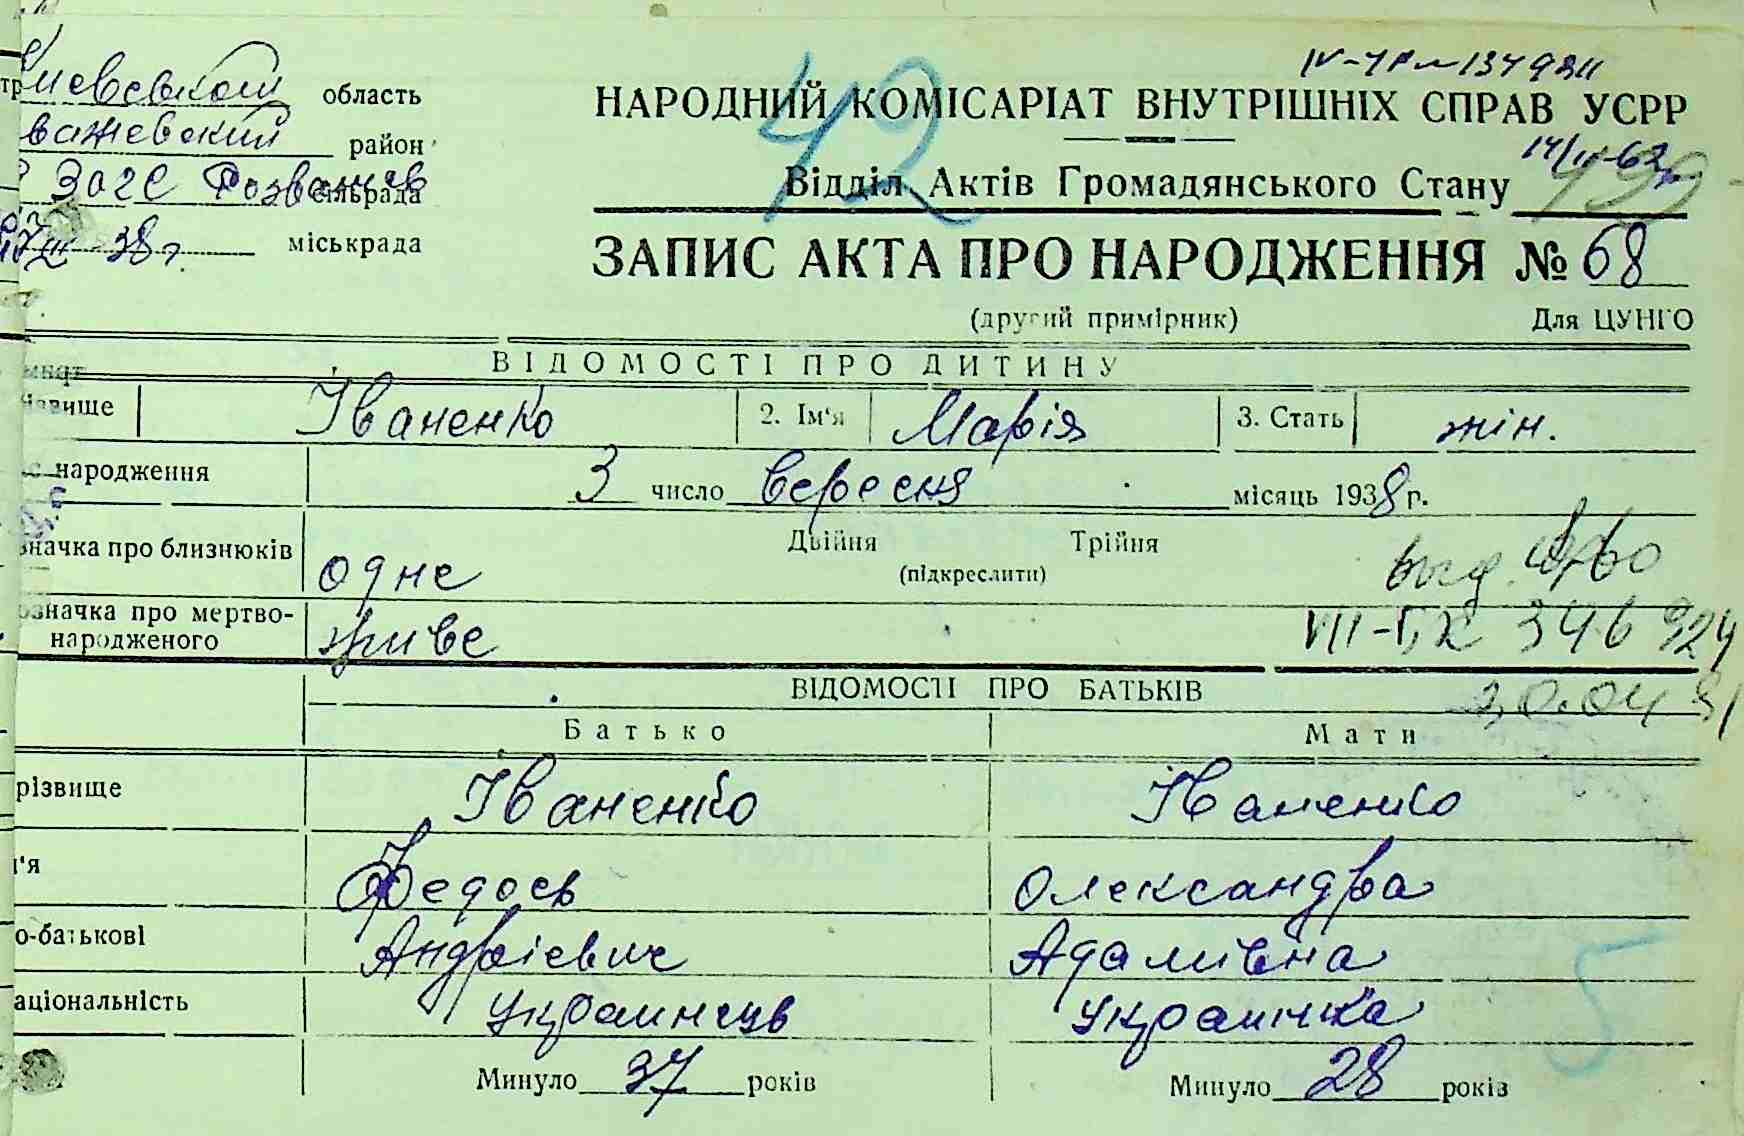 иевской область
важевский район
ЗАГС Розважев сільрада
38 г. міськрада
IV-УР № 137981
НАРОДНИЙ КОМІСАРІАТ ВНУТРІШНІХ СПРАВ УСРР
42
Відділ Актів Громадянського Стану
ЗАПИС АКТА ПРО НАРОДЖЕННЯ № 68
(другий примірник) Для ЦУНГО
ВІДОМОСТІ ПРО ДИТИНУ
ізвище Іваненко 2. Ім'я Марія 3. Стать жін.
с народження 3 число вересня місяць 1938 г.
значка про близнюків одне Двійня Трійня
(підкреслити)
означка про мертво-
народженого живе
VII-БК 346924
ВІДОМОСТІ ПРО БАТЬКІВ
20.04 81
Батько Мати
різвище Іваненко Іваненко
'я Федось Олександра
о-батькові Андрієвич Адамівна
аціональність Украинець Украинка
Минуло 37 років Минуло 28 років
5